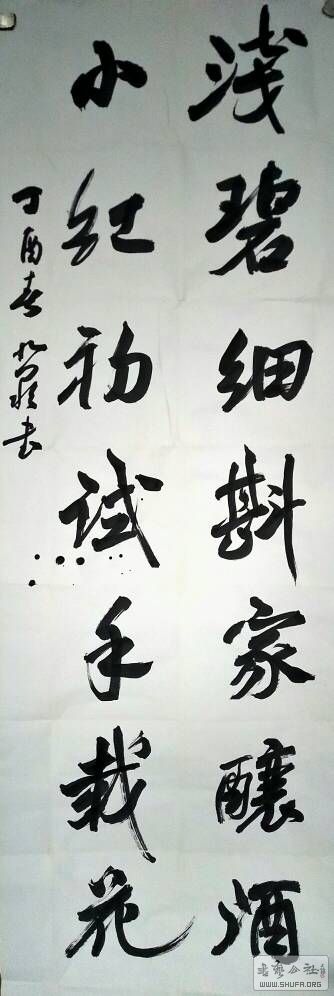 淺碧细斟家釀酒
小红初试手栽花
丁酉春
书
书艺公社
WWW.SHUFA.ORG